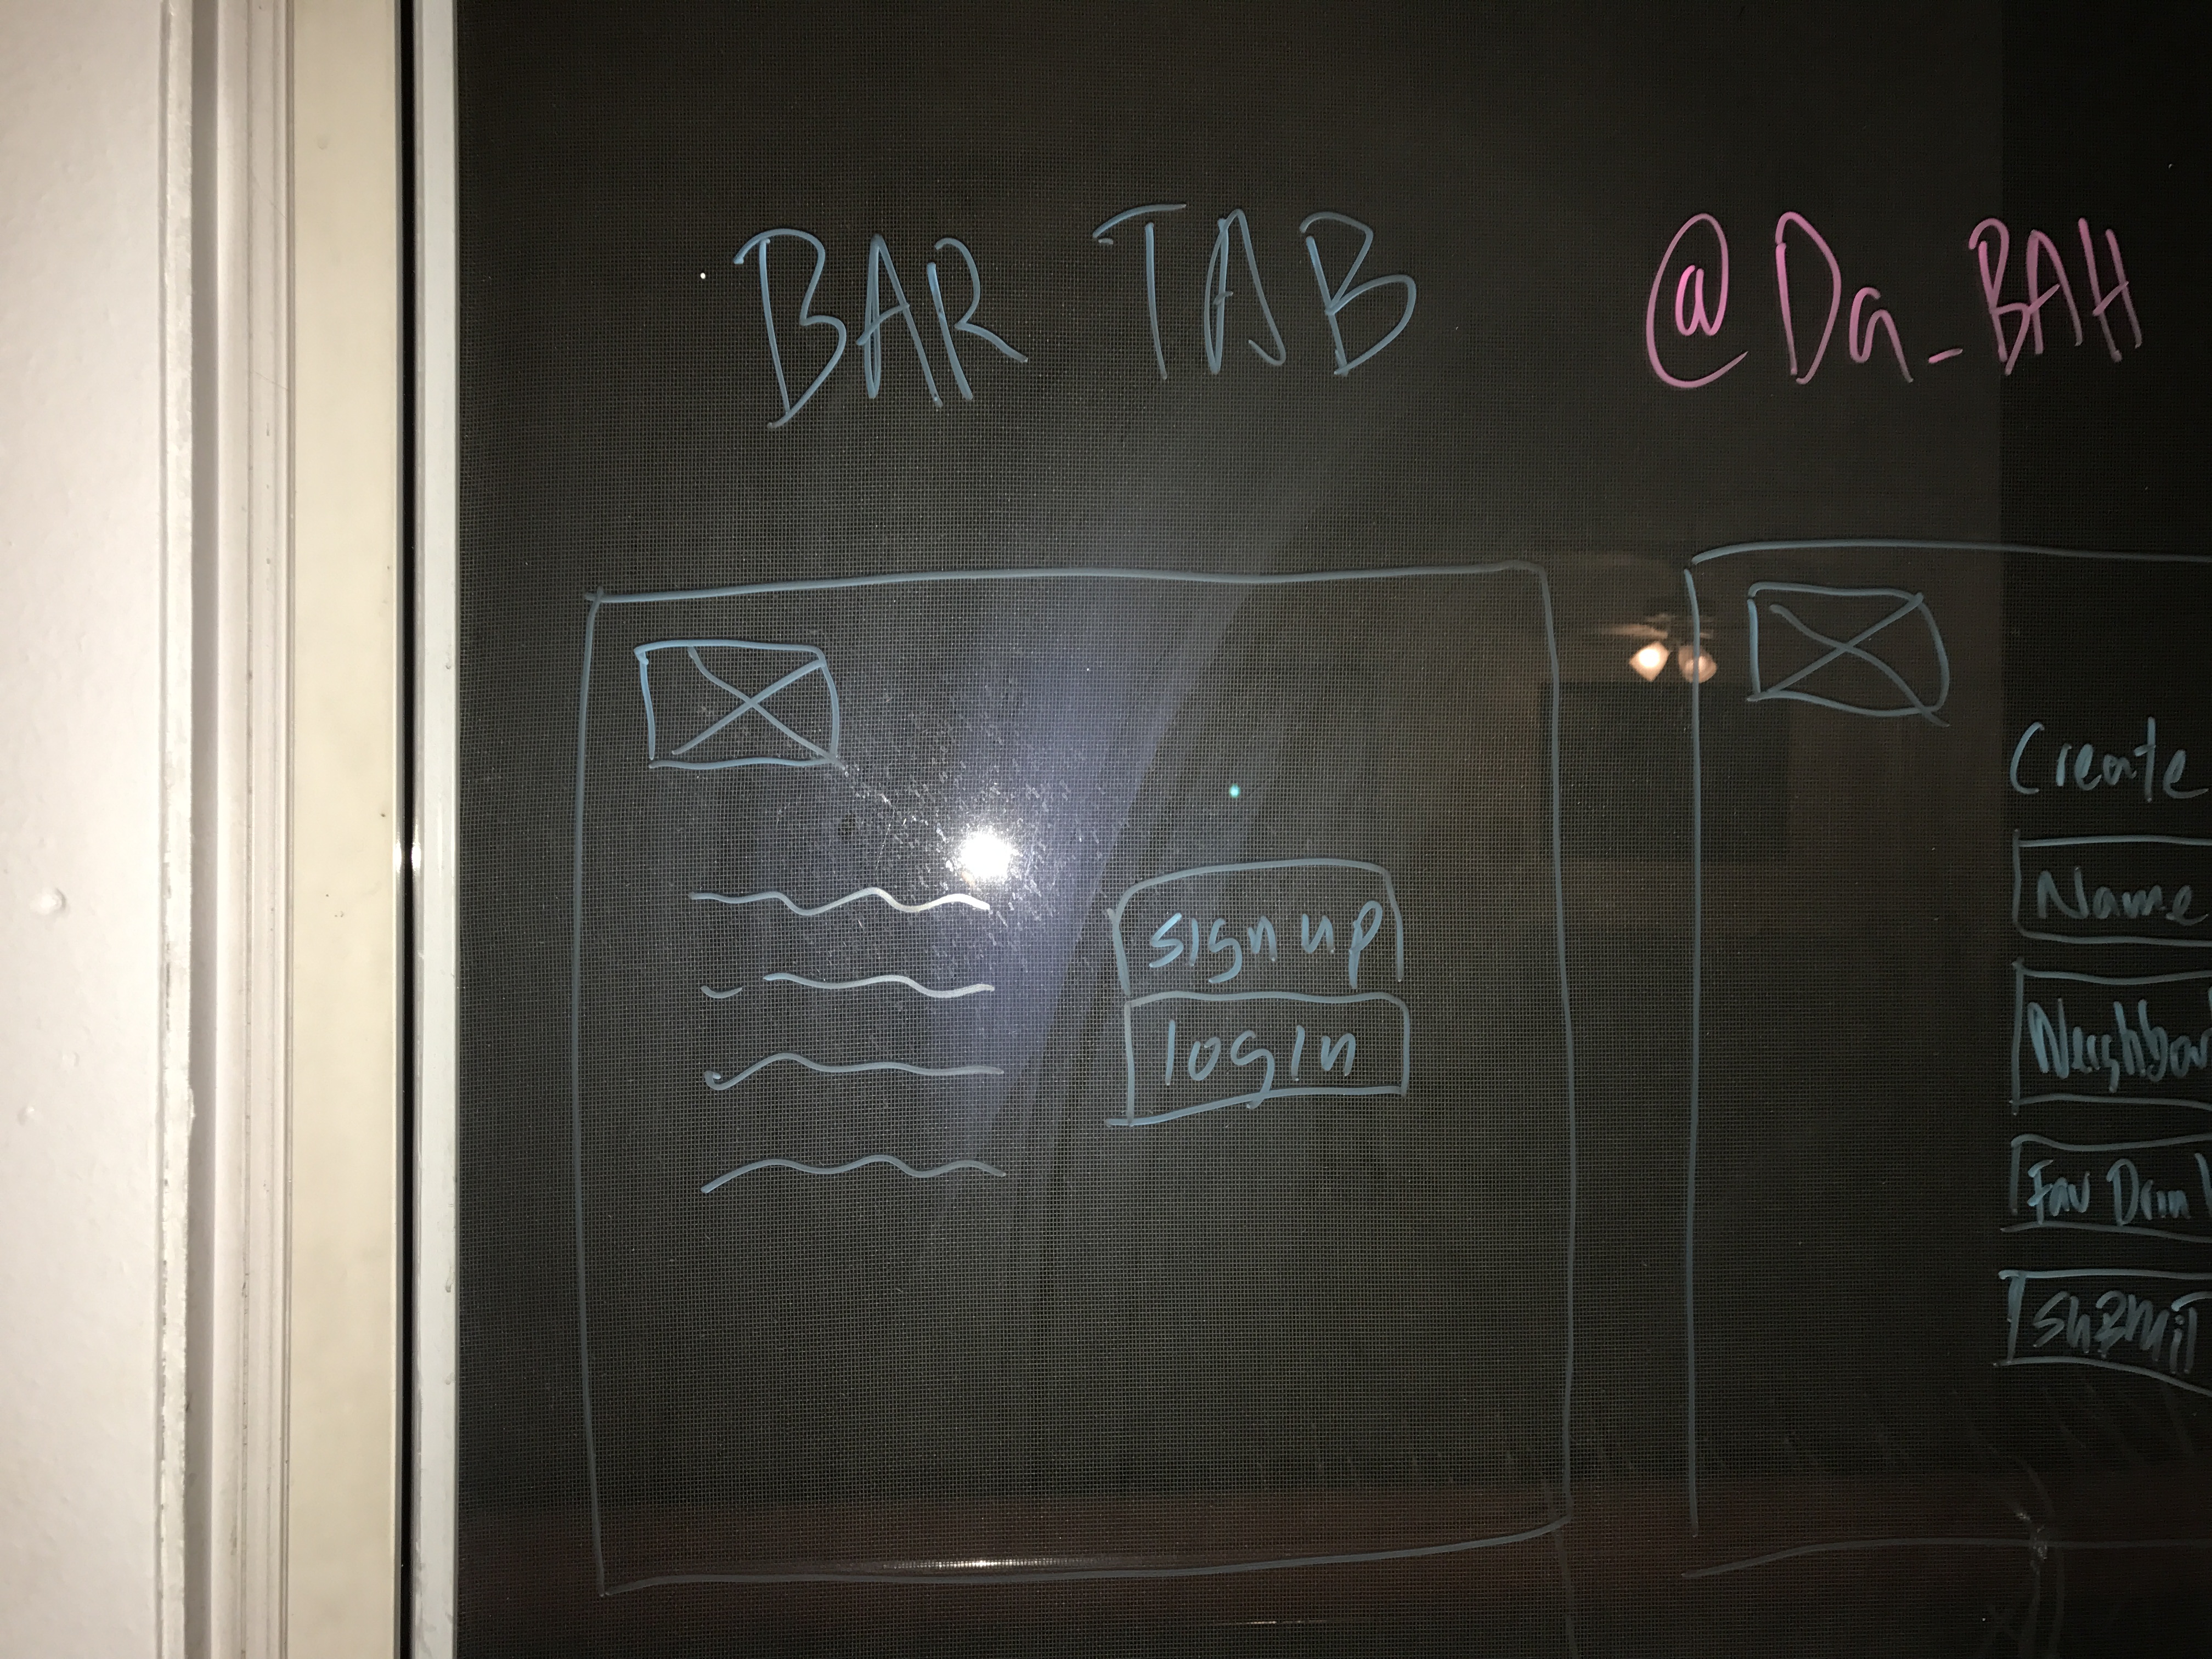 BAR TAB
@Da_BAH
sign up
login
Create
Name
Neighbor
Fav Drin
SuBmiT